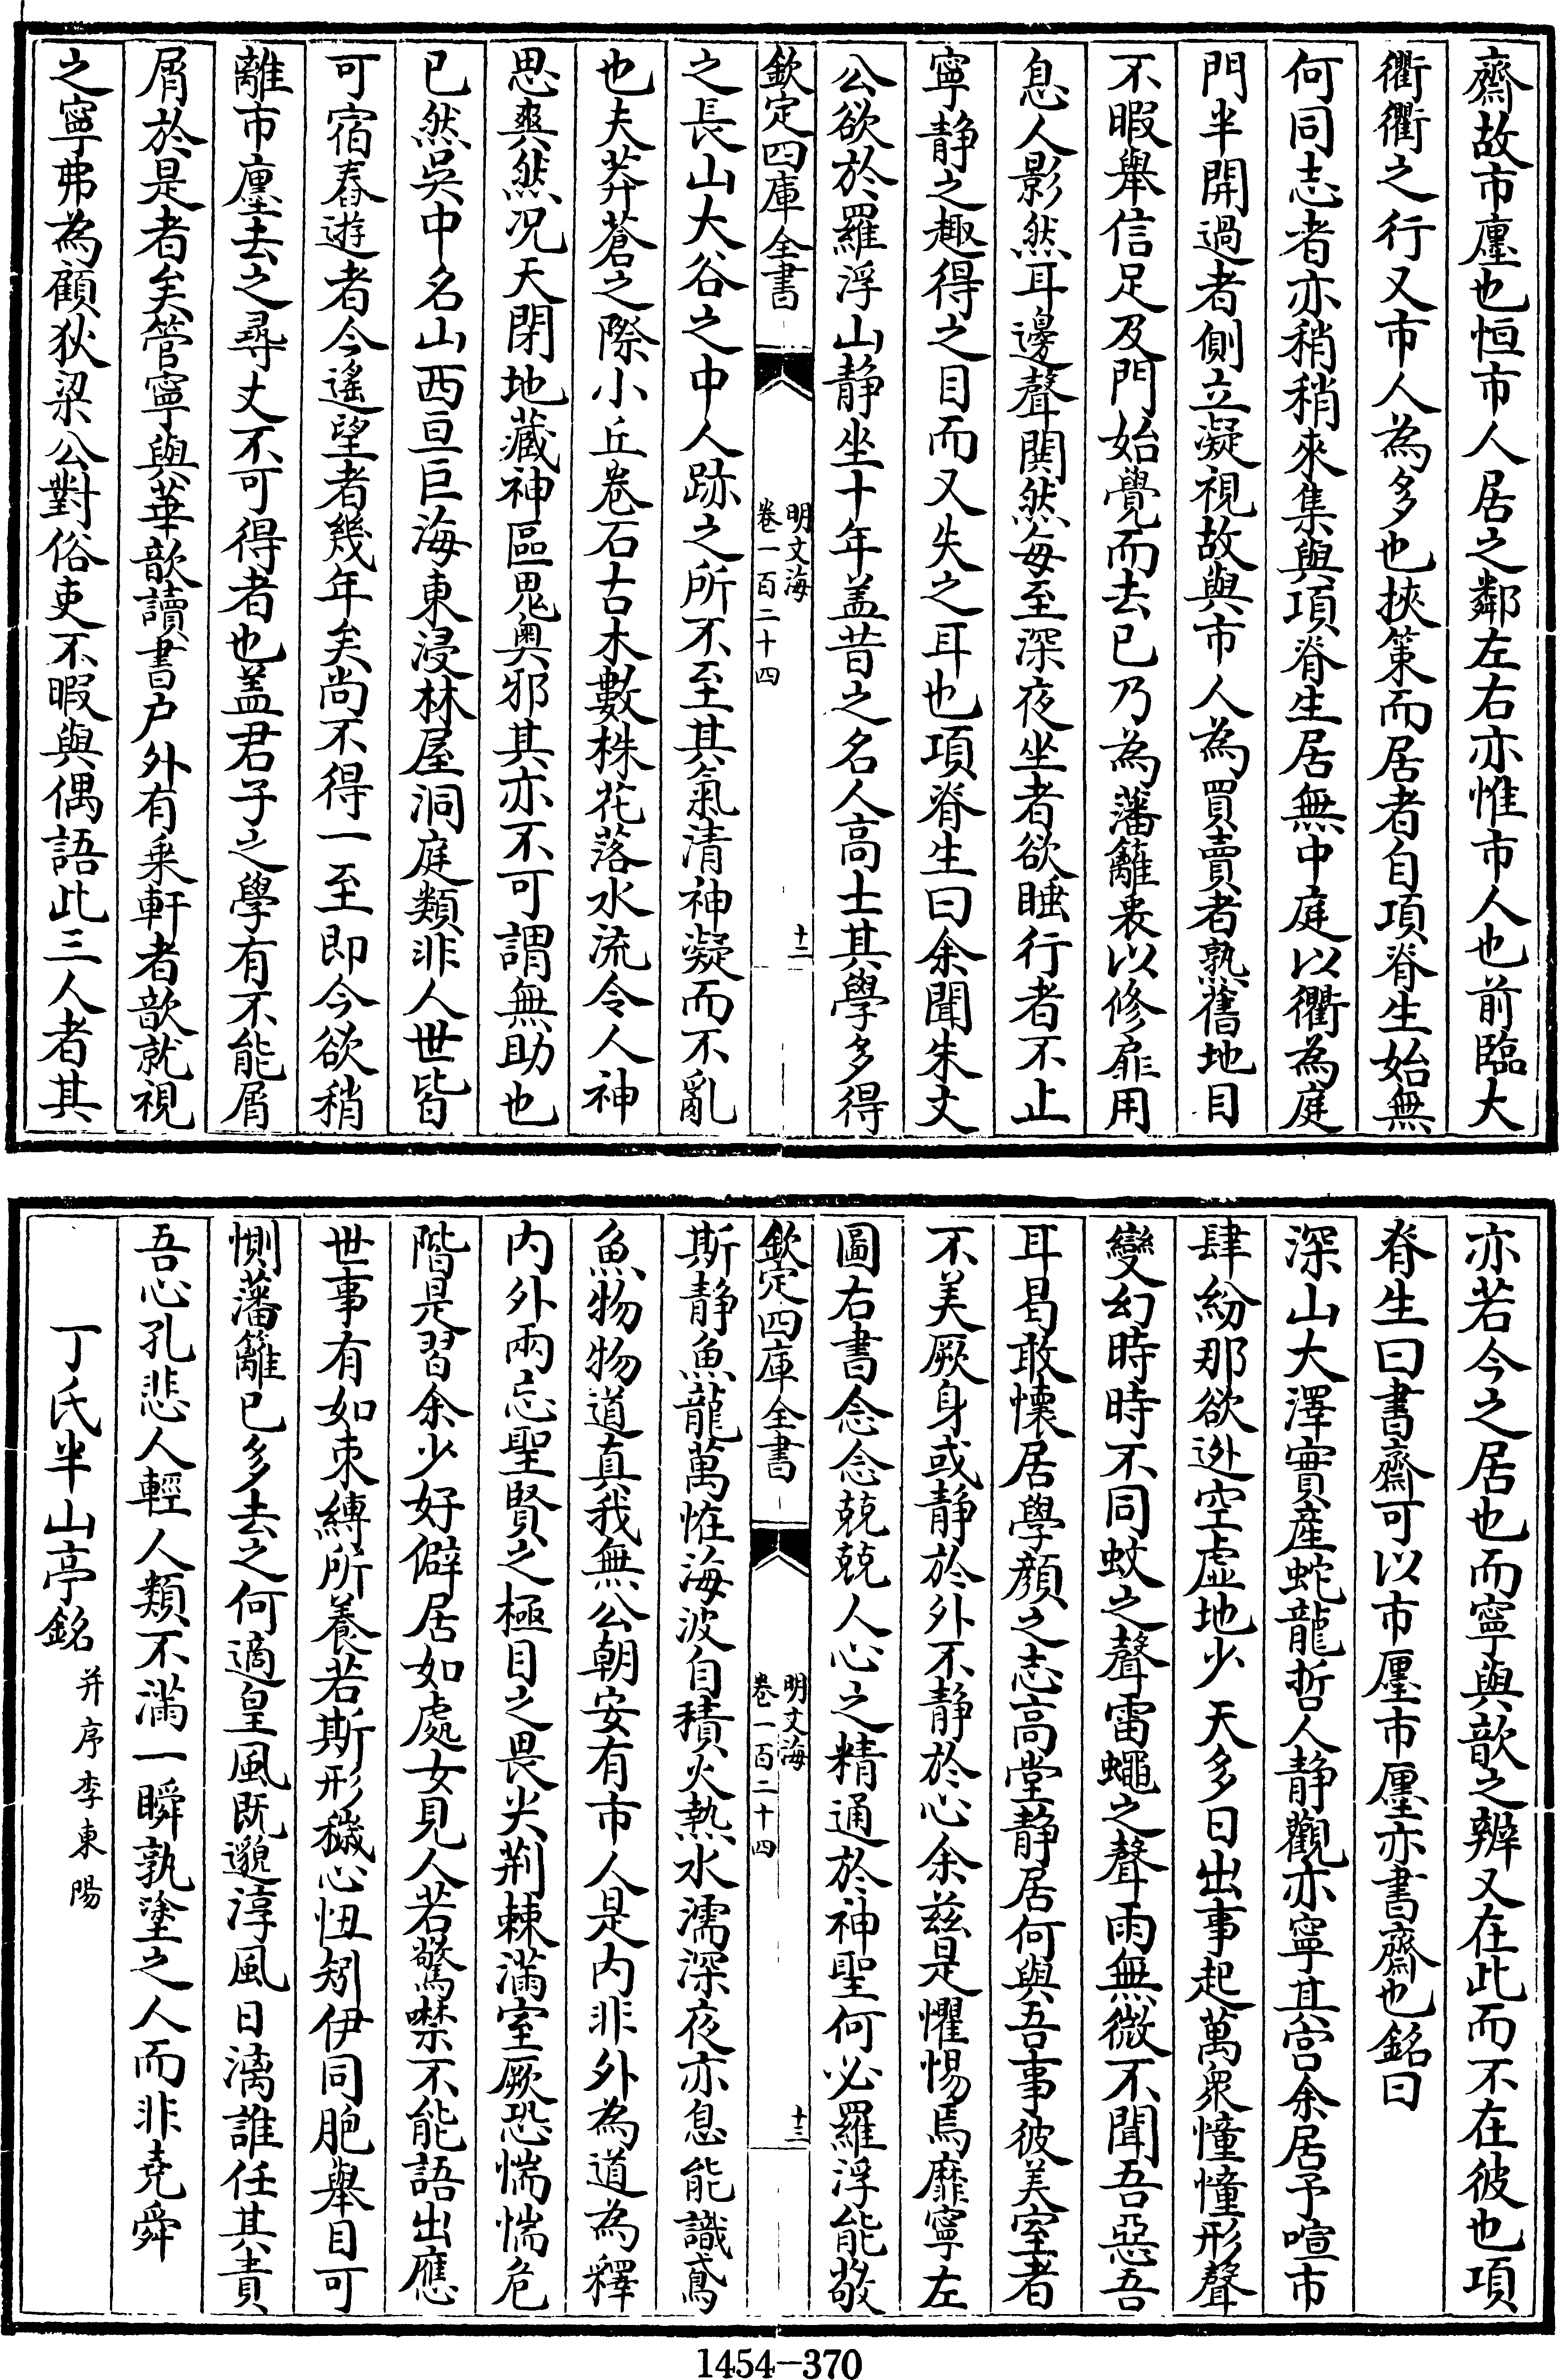 齋故市廛也恒市人居之鄰左右亦惟市人也前臨大
衢衢之行又市人為多也挾策而居者自項脊生始無
何同志者亦稍稍來集與項脊生居無中庭以衢為庭
門半開過者側立凝視故與市人為買賣者熟舊地目
不暇舉信足及門始覺而去已乃為藩籬衷以修扉用
息人影然耳邊聲閧然每至深夜坐者欲睡行者不止
寧静之趣得之目而又失之耳也項脊生曰余聞朱文
公欲於羅浮山静坐十年盖昔之名人高士其學多得
欽定四庫全書
明文海
卷一百二十四
十二
之長山大谷之中人跡之所不至其氣清神凝而不亂
也夫莽蒼之際小丘卷石古木數株花落水流令人神
思爽然况天閉地藏神區鬼奥邪其亦不可謂無助也
已然吳中名山西亘巨海東浸林屋洞庭類非人世皆
可宿舂遊者今遙望者幾年矣尚不得一至即今欲稍
離市廛去之尋丈不可得者也盖君子之學有不能屑
屑於是者矣管寧與華歆讀書户外有乗軒者歆就視
之寧弗為顧狄梁公對俗吏不暇與偶語此三人者其
亦若今之居也而寧與歆之辨又在此而不在彼也項
脊生曰書齋可以市廛市廛亦書齋也銘曰
深山大澤實産蛇龍哲人静觀亦寧其宫余居予喧市
肆紛那欲逃空虚地少天多日出事起萬衆憧憧形聲
變幻時時不同蚊之聲雷蠅之聲雨無微不聞吾惡吾
耳曷敢懷居學顔之志高堂静居何與吾事彼美室者
不美厥身或静於外不静於心余兹是懼惕焉靡寧左
圖右書念念兢兢人心之精通於神聖何必羅浮能敬
欽定四庫全書
明文海
卷一百二十四
十三
斯静魚龍萬恠海波自積火熱水濡深夜亦息能識鳶
魚物物道真我無公朝安有市人是内非外為道為釋
内外兩忘聖賢之極目之畏尖荆棘滿室厥恐惴惴危
階是習余少好僻居如處女見人若驚噤不能語出應
世事有如束縛所養若斯形穢心忸矧伊同胞舉目可
惻藩籬已多去之何適皇風既邈淳風日漓誰任其責
吾心孔悲人輕人類不滿一瞬孰塗之人而非堯舜
丁氏半山亭銘 并序 李東陽
1454-370